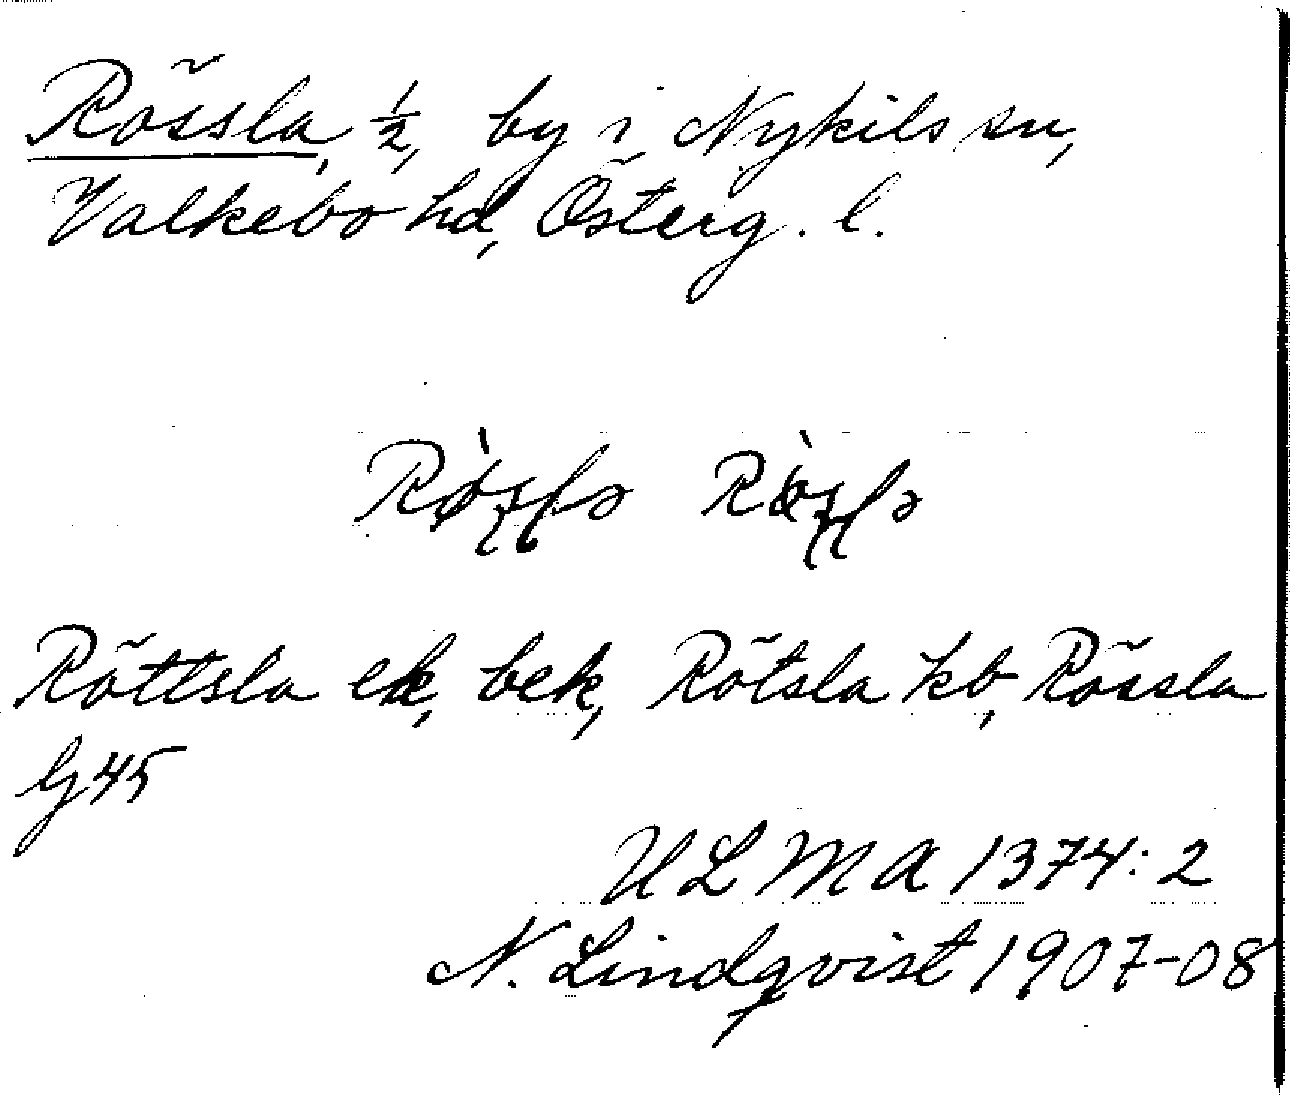 Rössla, ½, by i Nykils sn,
Valkebo hd, Österg. l.
Röttsla ek, bek, Rötsla kb, Rössla
G45
ULMA 1374:2
N. Lindqvist 1907-08